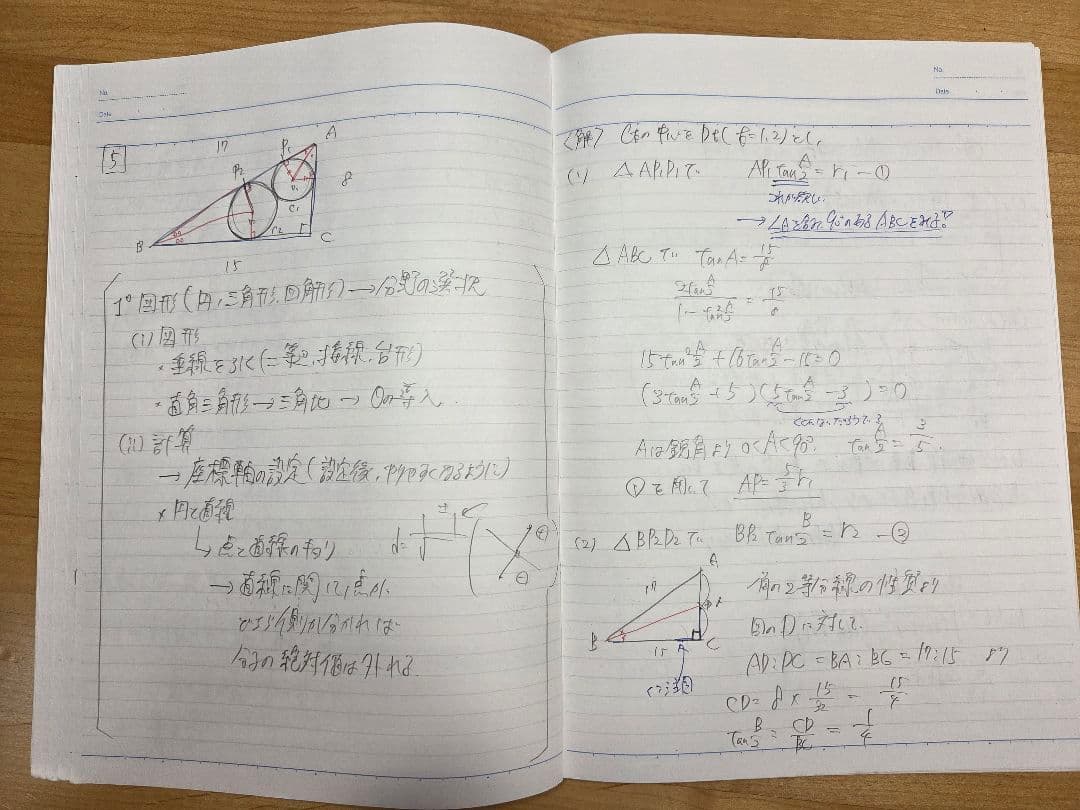 No.
Date
5
17
A
P₁
P₂
8
C₁
r₂
B
C
15
1° 図形(円,三角形,四角形)→分野の選択
(i) 図形
・垂線を引く(二等辺,接線,台形)
・直角三角形→三角比→θの導入
(ii) 計算
→座標軸の設定(設定後,やりやすくなるように)
× 円と直線
↳点と直線のキョリ
d=
±
⊕
⊖
→直線に関して,点が
どちら側か分かれば
分子の絶対値は外れる.
No.
Date
〈解〉 Ctの中心をDt(t=1,2)とし,
(1) △AP₁D₁で AP₁tan A/2 = r₁ −①
これが欲しい
→∠Aを含み,90°のある△ABCをみる
△ABCで tanA=15/8
2tan A/2 / 1−tan² A/2 = 15/8
15tan² A/2 + 16tan A/2 − 15=0
(3tan A/2 + 5)(5tan A/2 − 3)=0
Aは鋭角より 0<A<90°. tan A/2 = 3/5
①を用いて AP₁=5/3 r₁
(2) △BP₂D₂で BP₂ tan B/2 = r₂ −②
A
17
B
15
C
角の2等分線の性質より
図のDに対して,
AD:DC=BA:BC=17:15 より
CD=8×15/32=15/4
tan B/2 = CD/BC = 1/4